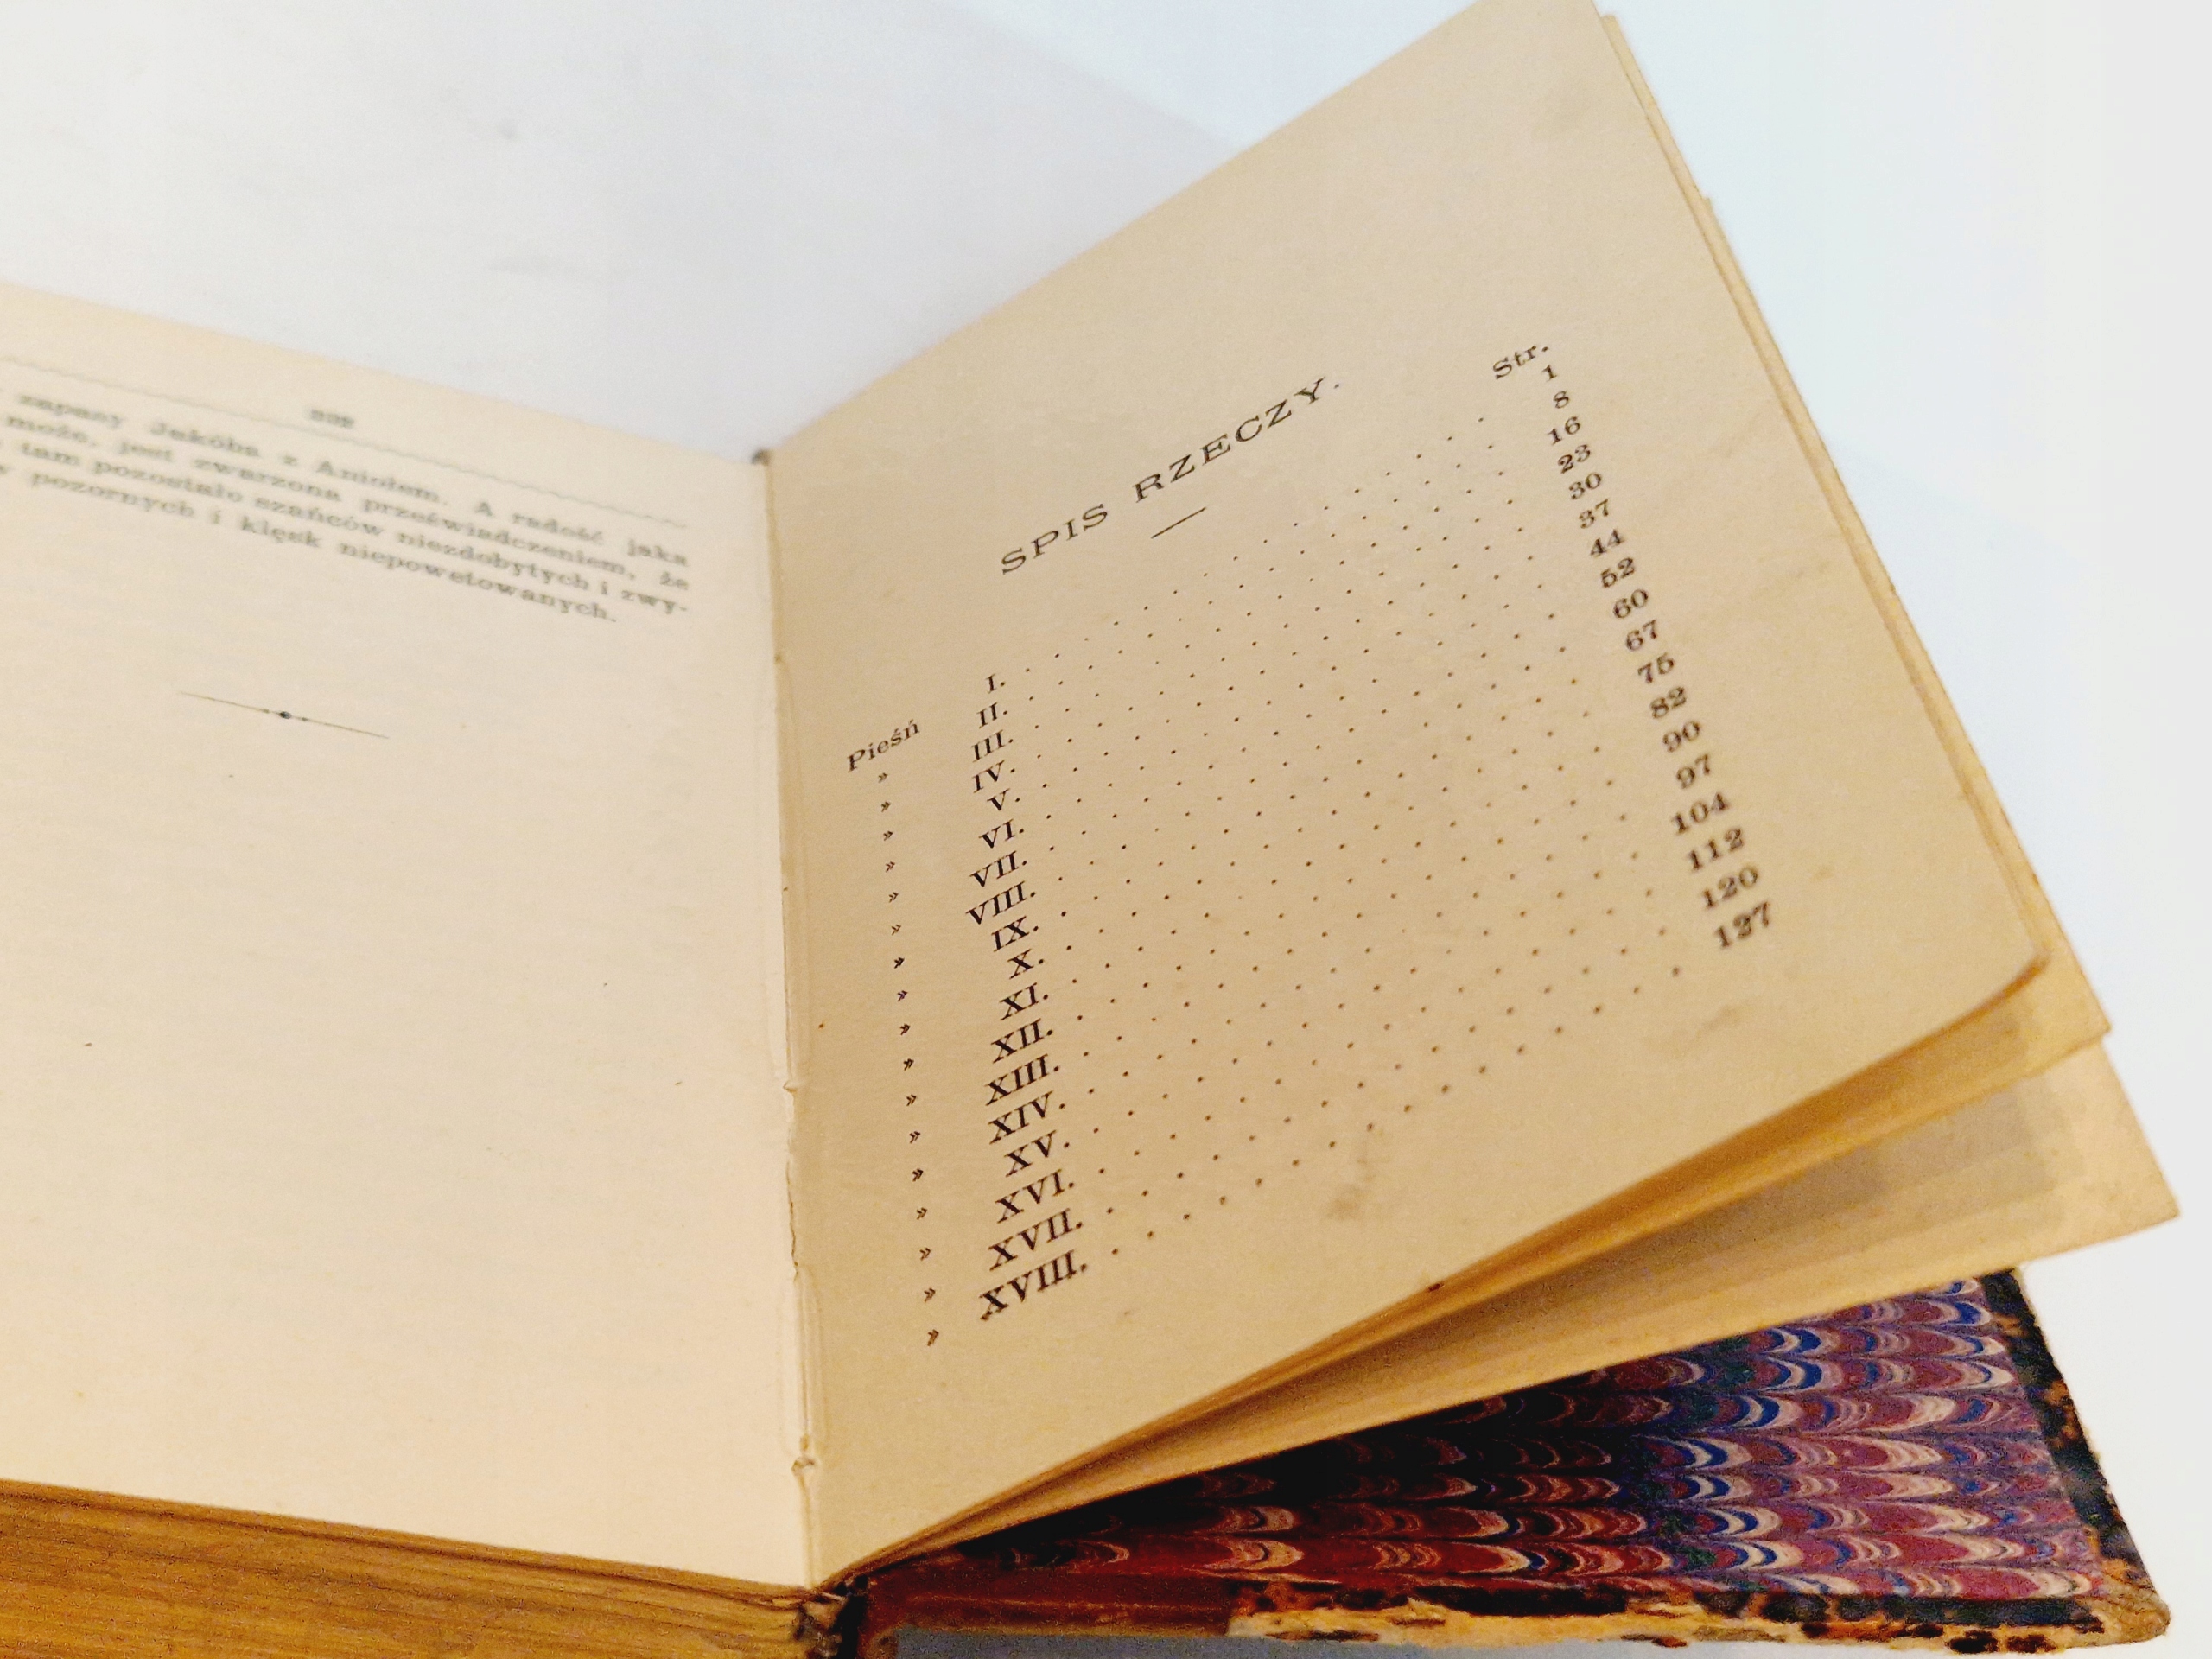 zapasy Jakóba z Aniołem. A radość jaka
może, jest zwarzona przeświadczeniem, że
tam pozostało szańców niezdobytych i zwy-
pozornych i klęsk niepowetowanych.
SPIS RZECZY.
Str.
Pieśń I. 1
» II. 8
» III. 16
» IV. 23
» V. 30
» VI. 37
» VII. 44
» VIII. 52
» IX. 60
» X. 67
» XI. 75
» XII. 82
» XIII. 90
» XIV. 97
» XV. 104
» XVI. 112
» XVII. 120
» XVIII. 127